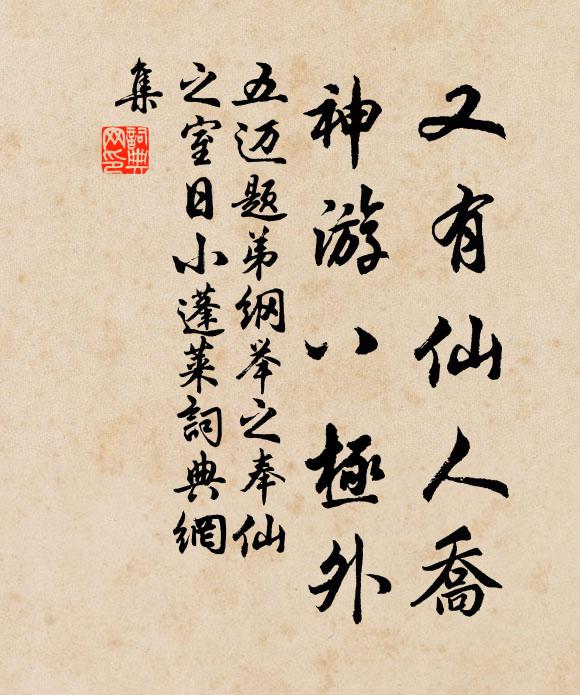 又有仙人喬
神游八極外
五迈題弟纲举之奉仙
之室日小蓬莱詞典網
集
詞典
网印